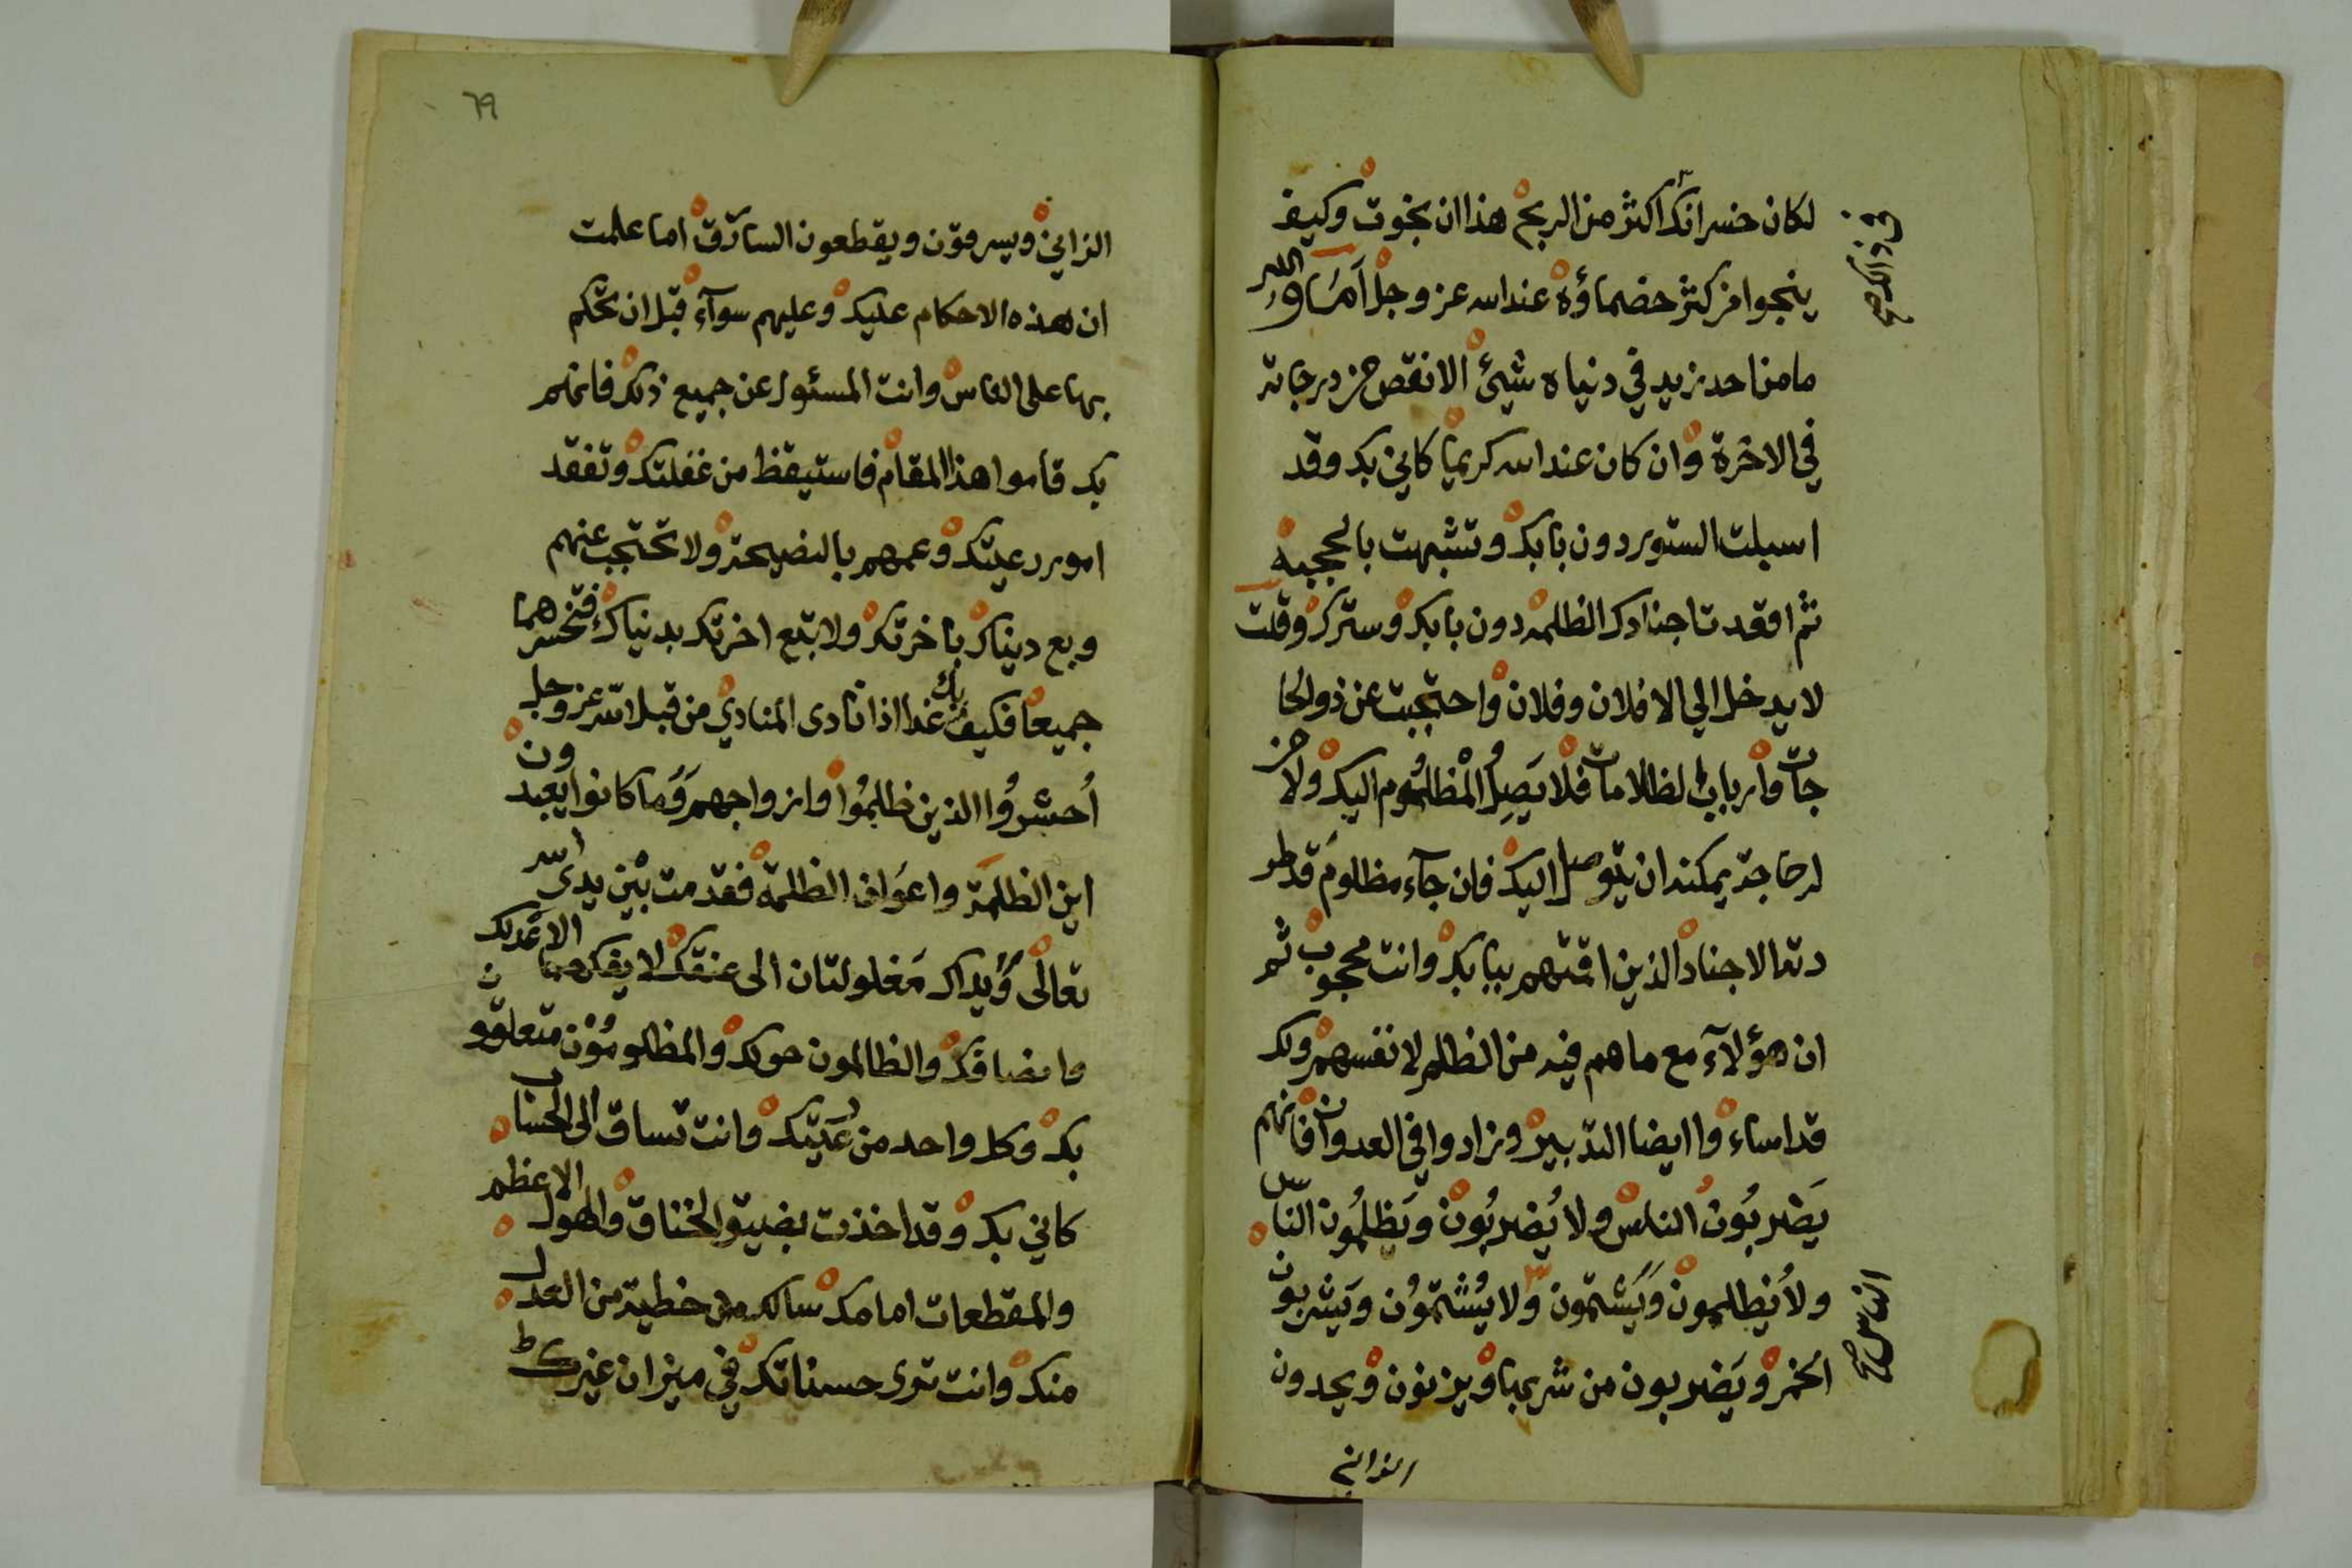 لكان خسرانك اكثر من الربح هذا ان نجوت وكيف
ينجوا من كثر خصماؤه عند الله عز وجل أمَا والله
ما من احد يزيد في دنياه شيئ الا نقص من درجاته
في الاخرة وان كان عند الله كريما كاني بك وقد
اسبلت الستور دون بابك وتشبهت بالحجبة
ثم افقدت اجنادك الظلمة دون بابك وسترك وقلت
لا يدخل الي الا فلان وفلان واحتجبت عن ذوالحا
جات وارباب الظلامات فلا يَصِلُ المْظلُوم اليك ولا من
له حاجة يمكنه ان يتوصل اليك فان جآء مظلوم قد طر
دته الاجناد الذين اقمتهم ببابك وانت محجوب ثم
ان هؤلآء مع ما هم فيه من الظلم لانفسهم ولك
قد اساءوا ايضا التدبير وزادوا في العدوان فانهم
يَضْربُون الناس ولا يُضربُون ويَظلمُون الناس
ولا يُظلمون وَيَشتمون ولا يُشتمُون ويَشربون
الخمر ويَضربون من شربها ويزنون ويحدون
الزاني
الناس صح
٦٩
الزاني ويسرقون ويقطعون السارق اما علمت
ان هذه الاحكام عليك وعليهم سوآء قبل ان تحكم
بها على الناس وانت المسئول عن جميع ذلك فانهم
بك قاموا هذا المقام فاستيقظ من غفلتك وتفقد
امور رعيتك وعمهم بالنصيحة ولا تحتجب عنهم
وبع دنياك باخرتك ولا تبع اخرتك بدنياك فتخسرهما
جميعا فكيف بك غدا اذا نادى المنادي من قبل الله عز وجل
أحشرُوا الذين ظلمُوا وازواجهم وَما كانوا يعبدون
اين الظلمة واعوان الظلمة فقدمت بَيْن يدى الله
تعالى وَيداك مَغلولتان الى عنقك لا يفكهما الا عَدلك
وانصافك والظالمون حولك والمظلومُوْن متعلقون
بك وكل واحد من رعَيتك وانت تساق الى الحساب
كاني بك وقد اخذت بضيق الخناق والهول الاعظم
والمقطعات امامك سالك من خطية من العدل
منك وانت ترى حسناتك في ميزان غيرك